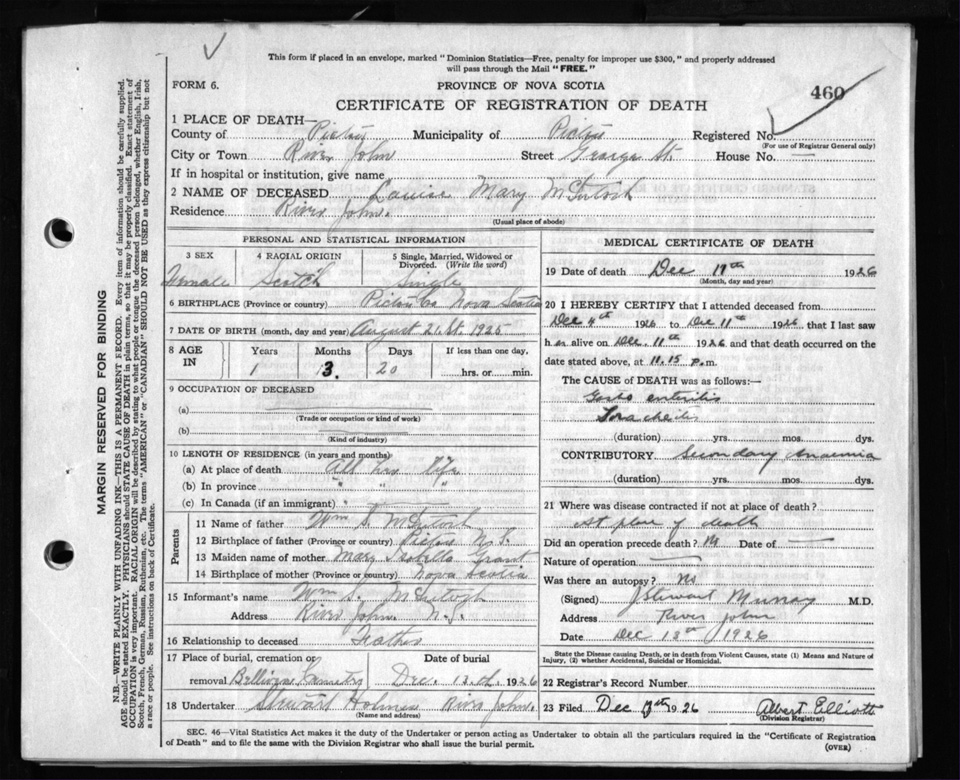 This form if placed in an envelope, marked "Dominion Statistics—Free, penalty for improper use $300," and properly addressed
will pass through the Mail "FREE."
FORM 6.
PROVINCE OF NOVA SCOTIA
460
CERTIFICATE OF REGISTRATION OF DEATH
1 PLACE OF DEATH—
County of Pictou Municipality of Pictou Registered No.
(For use of Registrar General only)
City or Town River John Street George St. House No. —
If in hospital or institution, give name
2 NAME OF DECEASED Louise Mary McIntosh
Residence River John.
(Usual place of abode)
PERSONAL AND STATISTICAL INFORMATION
3 SEX 4 RACIAL ORIGIN 5 Single, Married, Widowed or Divorced. (Write the word)
Female Scotch Single
6 BIRTHPLACE (Province or country) Pictou Co Nova Scotia
7 DATE OF BIRTH (month, day and year) August 21st. 1925
8 AGE IN Years Months Days If less than one day,
1 3. 20 hrs. or min.
9 OCCUPATION OF DECEASED
(a)
(Trade or occupation or kind of work)
(b)
(Kind of industry)
10 LENGTH OF RESIDENCE (in years and months)
(a) At place of death All her life
(b) In province " " "
(c) In Canada (if an immigrant) "
Parents
11 Name of father Wm S. McIntosh
12 Birthplace of father (Province or country) Pictou N.S.
13 Maiden name of mother Mary Isabella Grant
14 Birthplace of mother (Province or country) Nova Scotia
15 Informant's name Wm S. McIntosh
Address River John. N.S.
16 Relationship to deceased Father
17 Place of burial, cremation or Date of burial
removal Cemetery Dec. 12th. 1926
18 Undertaker Stewart Holmes River John.
(Name and address)
MEDICAL CERTIFICATE OF DEATH
19 Date of death Dec 11th 1926
(Month, day and year)
20 I HEREBY CERTIFY that I attended deceased from
Dec 4th 1926 to Dec 11th 1926 that I last saw
her alive on Dec. 11th 1926 and that death occurred on the
date stated above, at 11.15 p.m.
The CAUSE of DEATH was as follows:—
Gastro enteritis
Tracheitis
(duration) yrs. mos. dys.
CONTRIBUTORY Secondary Anaemia
(duration) yrs. mos. dys.
21 Where was disease contracted if not at place of death?
at place of death
Did an operation precede death? No Date of —
Nature of operation
Was there an autopsy? No
(Signed) J Stewart Murray M.D.
Address River John
Date Dec 12th 1926
State the Disease causing Death, or in death from Violent Causes, state (1) Means and Nature of
Injury, (2) whether Accidental, Suicidal or Homicidal.
22 Registrar's Record Number
23 Filed Dec 1926 Albert Elliott
(Division Registrar)
SEC. 46—Vital Statistics Act makes it the duty of the Undertaker or person acting as Undertaker to obtain all the particulars required in the "Certificate of Registration
of Death" and to file the same with the Division Registrar who shall issue the burial permit.
(OVER)
MARGIN RESERVED FOR BINDING
N.B.—WRITE PLAINLY WITH UNFADING INK—THIS IS A PERMANENT RECORD. Every item of information should be carefully supplied.
AGE should be stated EXACTLY. PHYSICIANS should STATE CAUSE OF DEATH in plain terms, so that it may be properly classified. Exact statement of
OCCUPATION is very important. RACIAL ORIGIN will be described by stating to what people or tongue the deceased person belonged, whether English, Irish,
Scotch, French, German, Russian, Ruthenian, etc. The terms "AMERICAN" or "CANADIAN" SHOULD NOT BE USED as they express citizenship but not
a race or people. See instructions on back of Certificate.